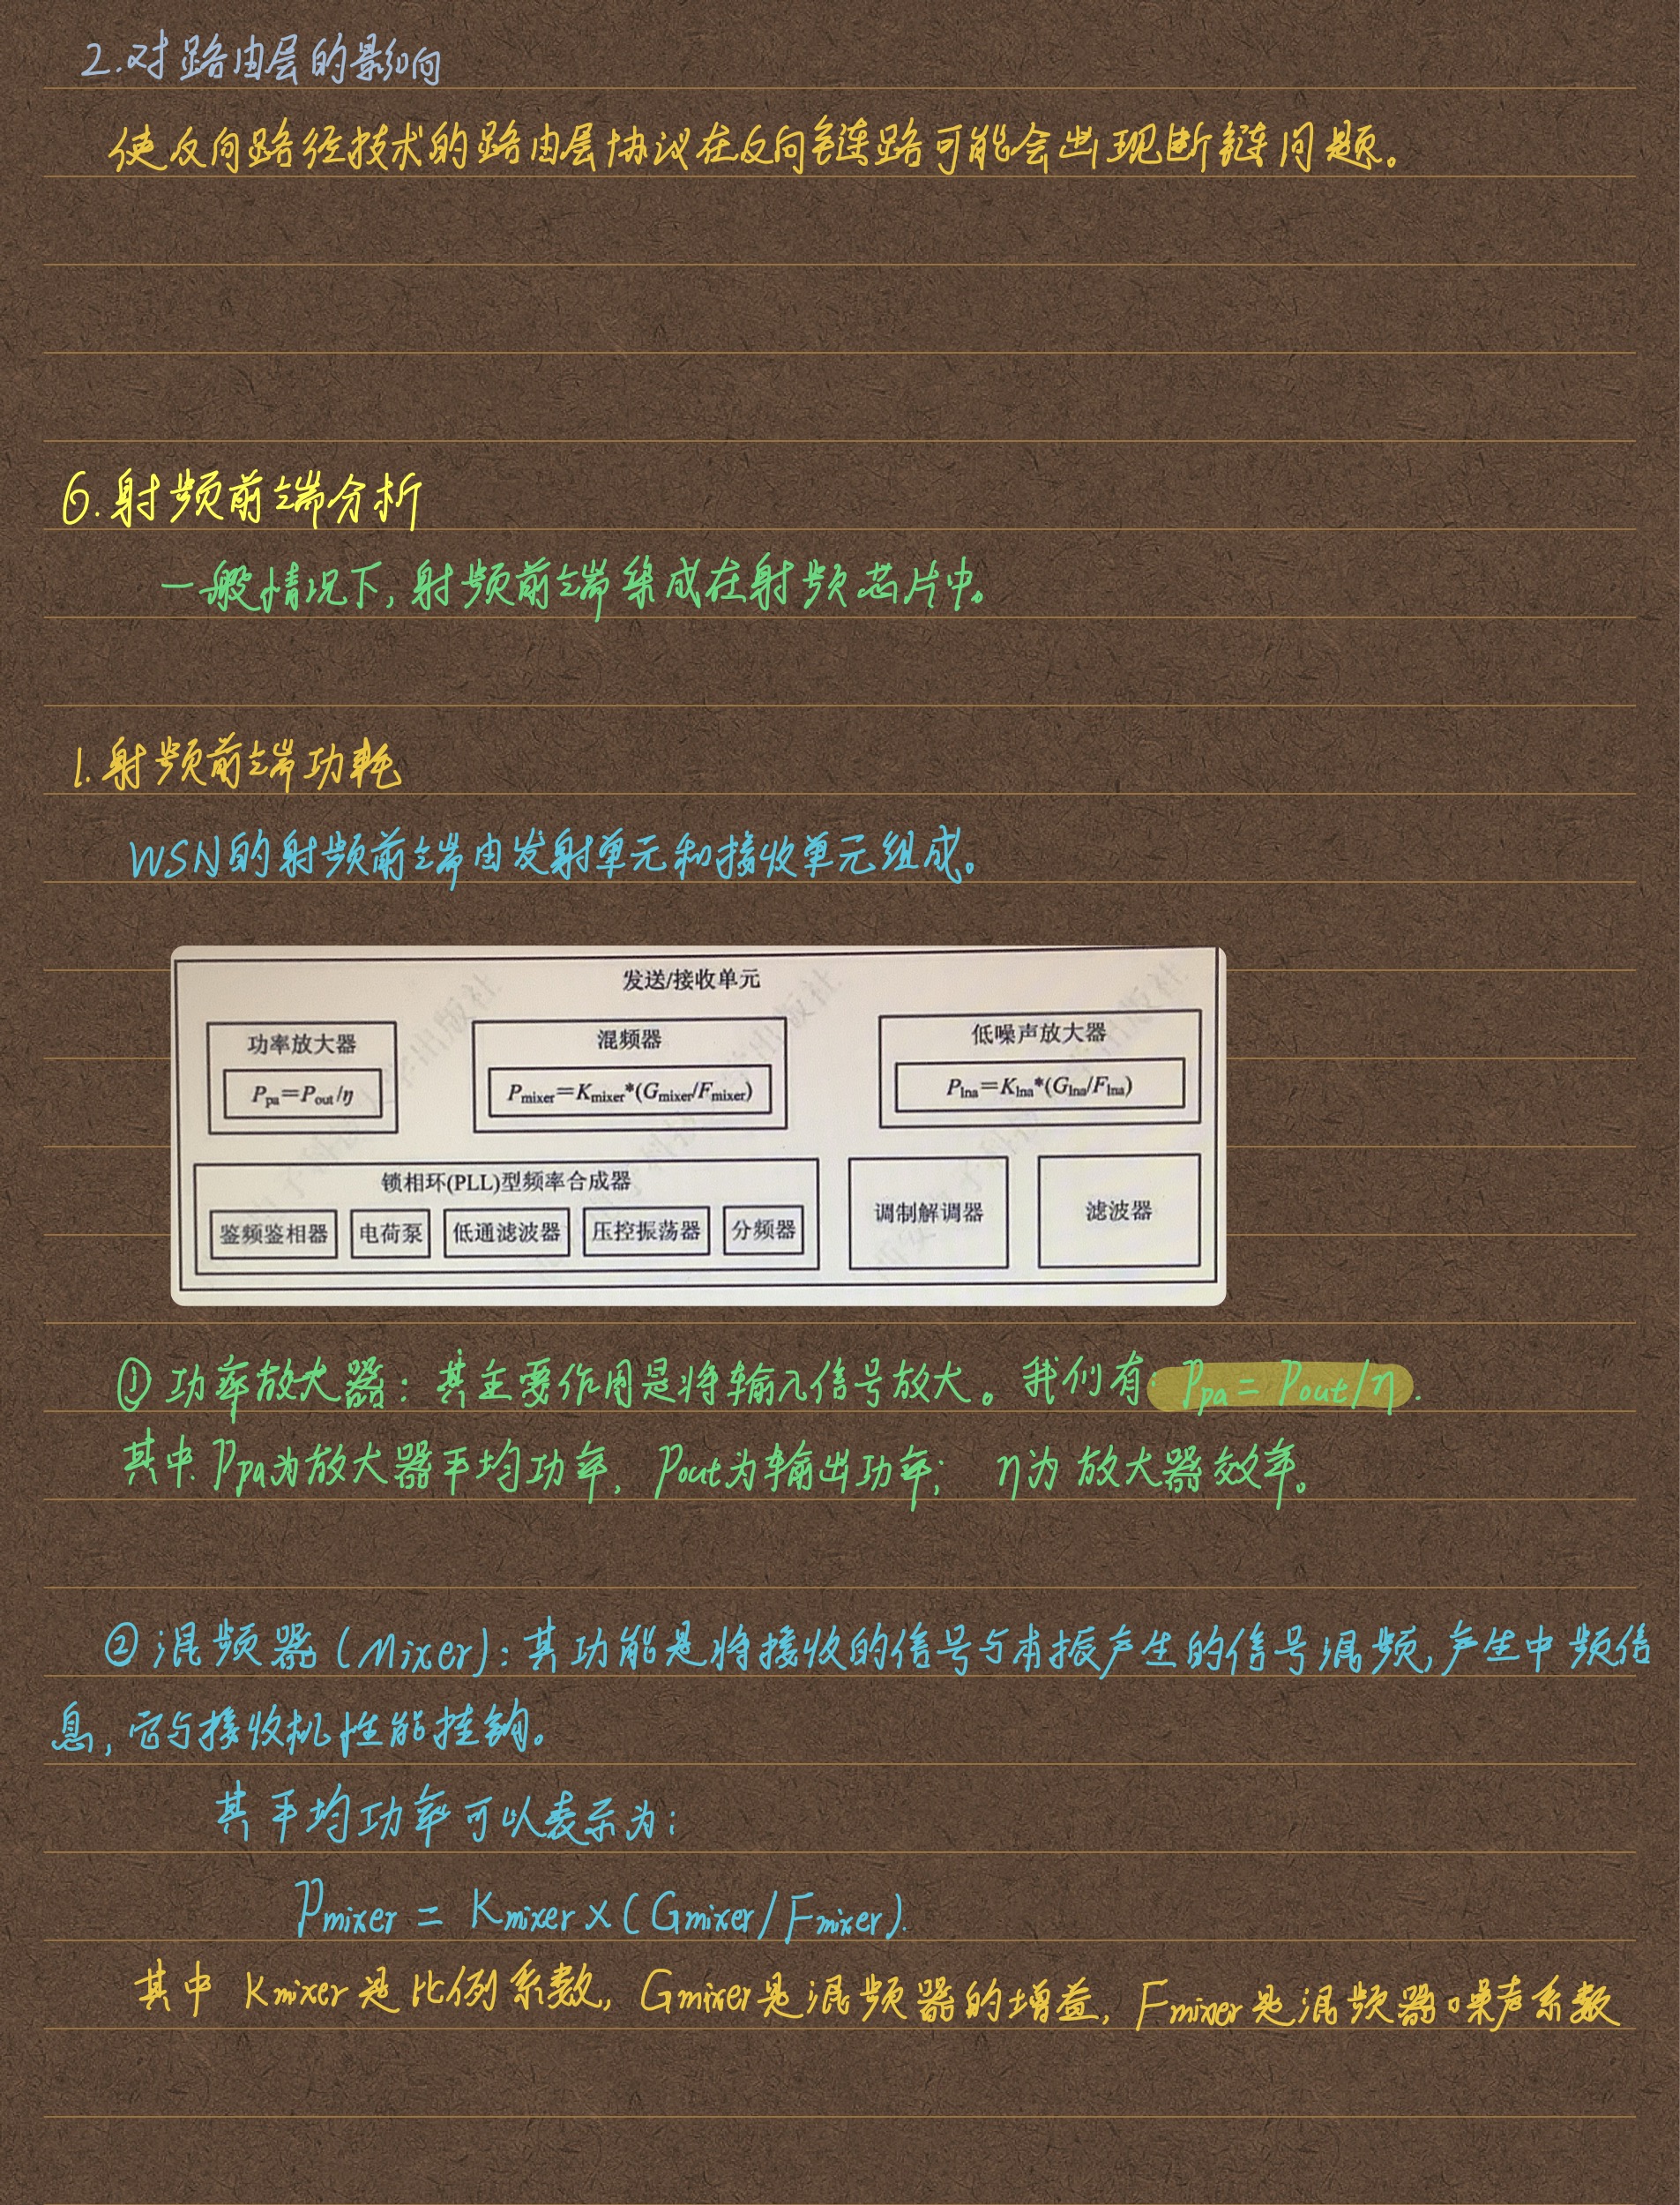 2.对路由层的影响
使反向路径技术的路由层协议在反向链路可能会出现断链问题。
6.射频前端分析
一般情况下,射频前端集成在射频芯片中。
1.射频前端功耗
WSN的射频前端由发射单元和接收单元组成。
发送/接收单元
功率放大器 混频器 低噪声放大器
Ppa=Pout/η Pmixer=Kmixer*(Gmixer/Fmixer) Plna=Klna*(Glna/Flna)
锁相环(PLL)型频率合成器
鉴频鉴相器 电荷泵 低通滤波器 压控振荡器 分频器 调制解调器 滤波器
①功率放大器:其主要作用是将输入信号放大。我们有:Ppa=Pout/η.
其中.Ppa为放大器平均功率,Pout为输出功率;η为放大器效率。
②混频器(Mixer):其功能是将接收的信号与本振产生的信号混频,产生中频信
息,它与接收机性能挂钩。
其平均功率可以表示为:
Pmixer=Kmixer×(Gmixer/Fmixer).
其中Kmixer是比例系数,Gmixer是混频器的增益,Fmixer是混频器噪声系数